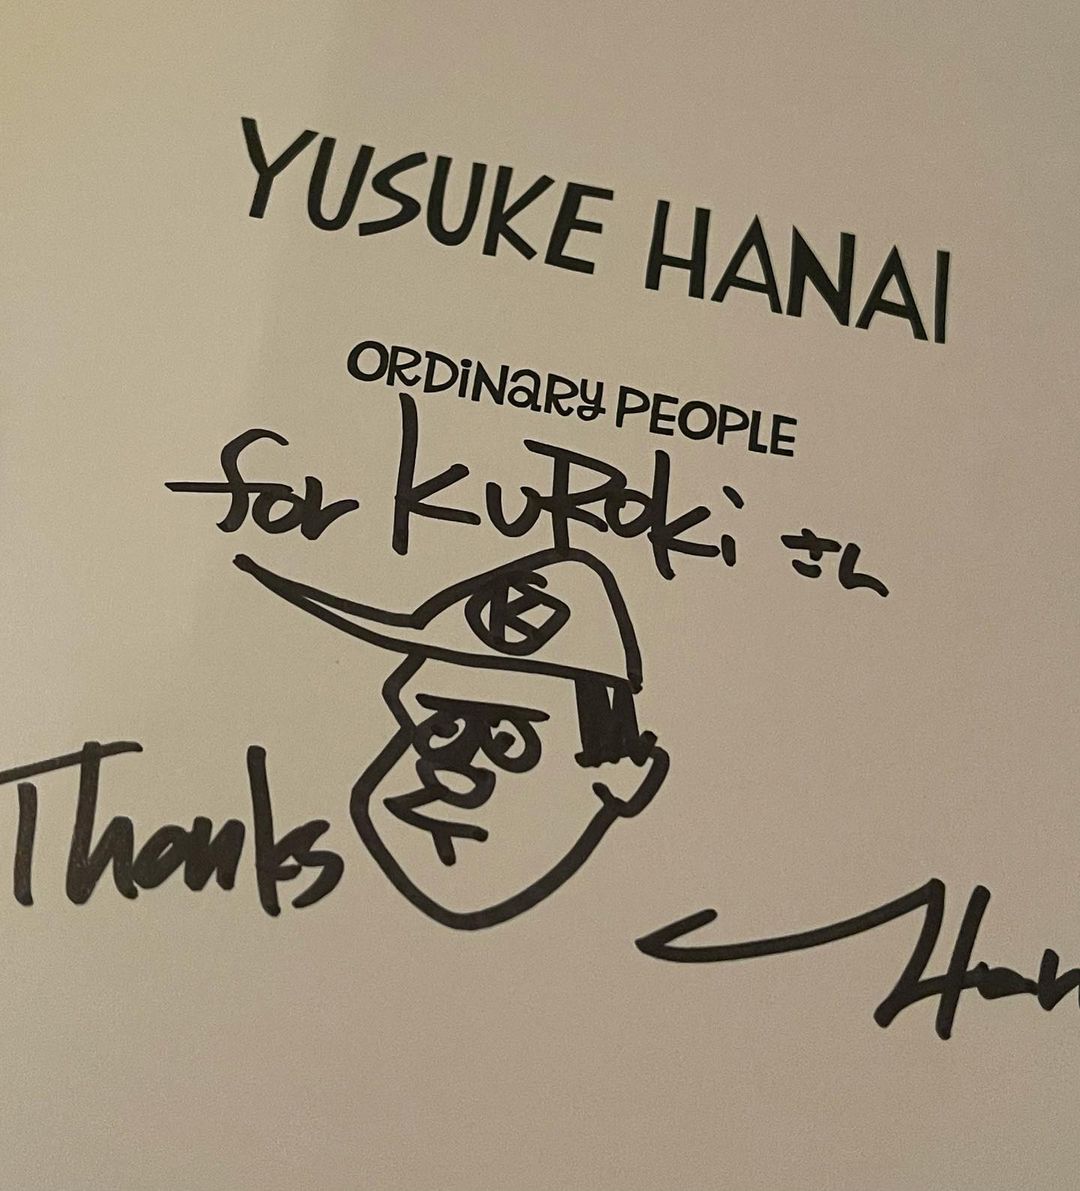 YUSUKE HANAI
ORDiNaRY PEOPLE
for KuRoki さん
K
Thanks